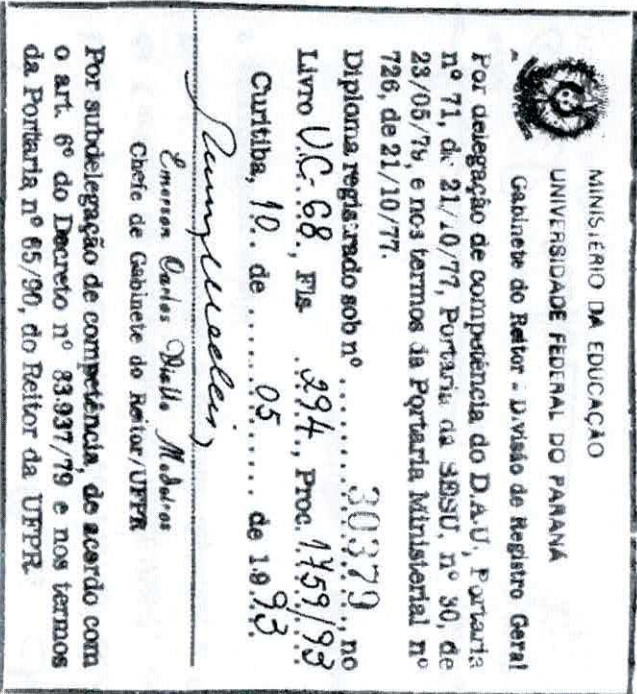 MINISTÉRIO DA EDUCAÇÃO
UNIVERSIDADE FEDERAL DO PARANÁ
Gabinete do Reitor - Divisão de Registro Geral
Por delegação de competência do D.A.U, Portaria
nº 71, de 21/10/77, Portaria da SESU, nº 30, de
23/05/79, e nos termos da Portaria Ministerial nº
726, de 21/10/77.
Diploma registrado sob nº ......30379...., no
Livro UC-68., Fls ..294., Proc. 1759/93
Curitiba, 10.. de ........05....... de 1.993.
Emerson Carlos Medeiros
Chefe de Gabinete do Reitor/UFPR
Por subdelegação de competência, de acordo com
o art. 6º do Decreto nº 83.937/79 e nos termos
da Portaria nº 65/90, do Reitor da UFPR.